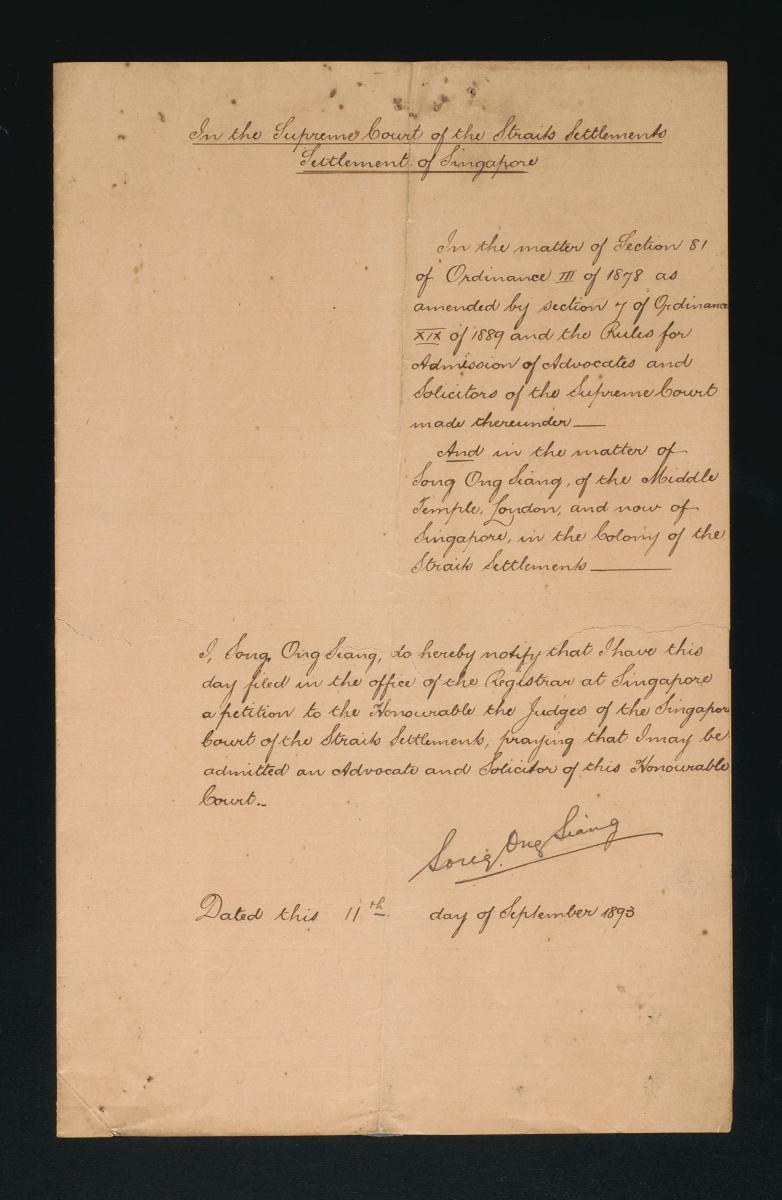 In the Supreme Court of the Straits Settlements
Settlement of Singapore
In the matter of Section 81
of Ordinance III of 1878 as
amended by section 7 of Ordinance
XIX of 1889 and the Rules for
Admission of Advocates and
Solicitors of the Supreme Court
made thereunder —
And in the matter of
Song Ong Siang, of the Middle
Temple, London, and now of
Singapore, in the Colony of the
Straits Settlements —
I, Song Ong Siang, do hereby notify that I have this
day filed in the office of the Registrar at Singapore
a petition to the Honourable the Judges of the Singapore
Court of the Straits Settlements, praying that I may be
admitted an Advocate and Solicitor of this Honourable
Court.–
Song Ong Siang
Dated this 11th day of September 1893